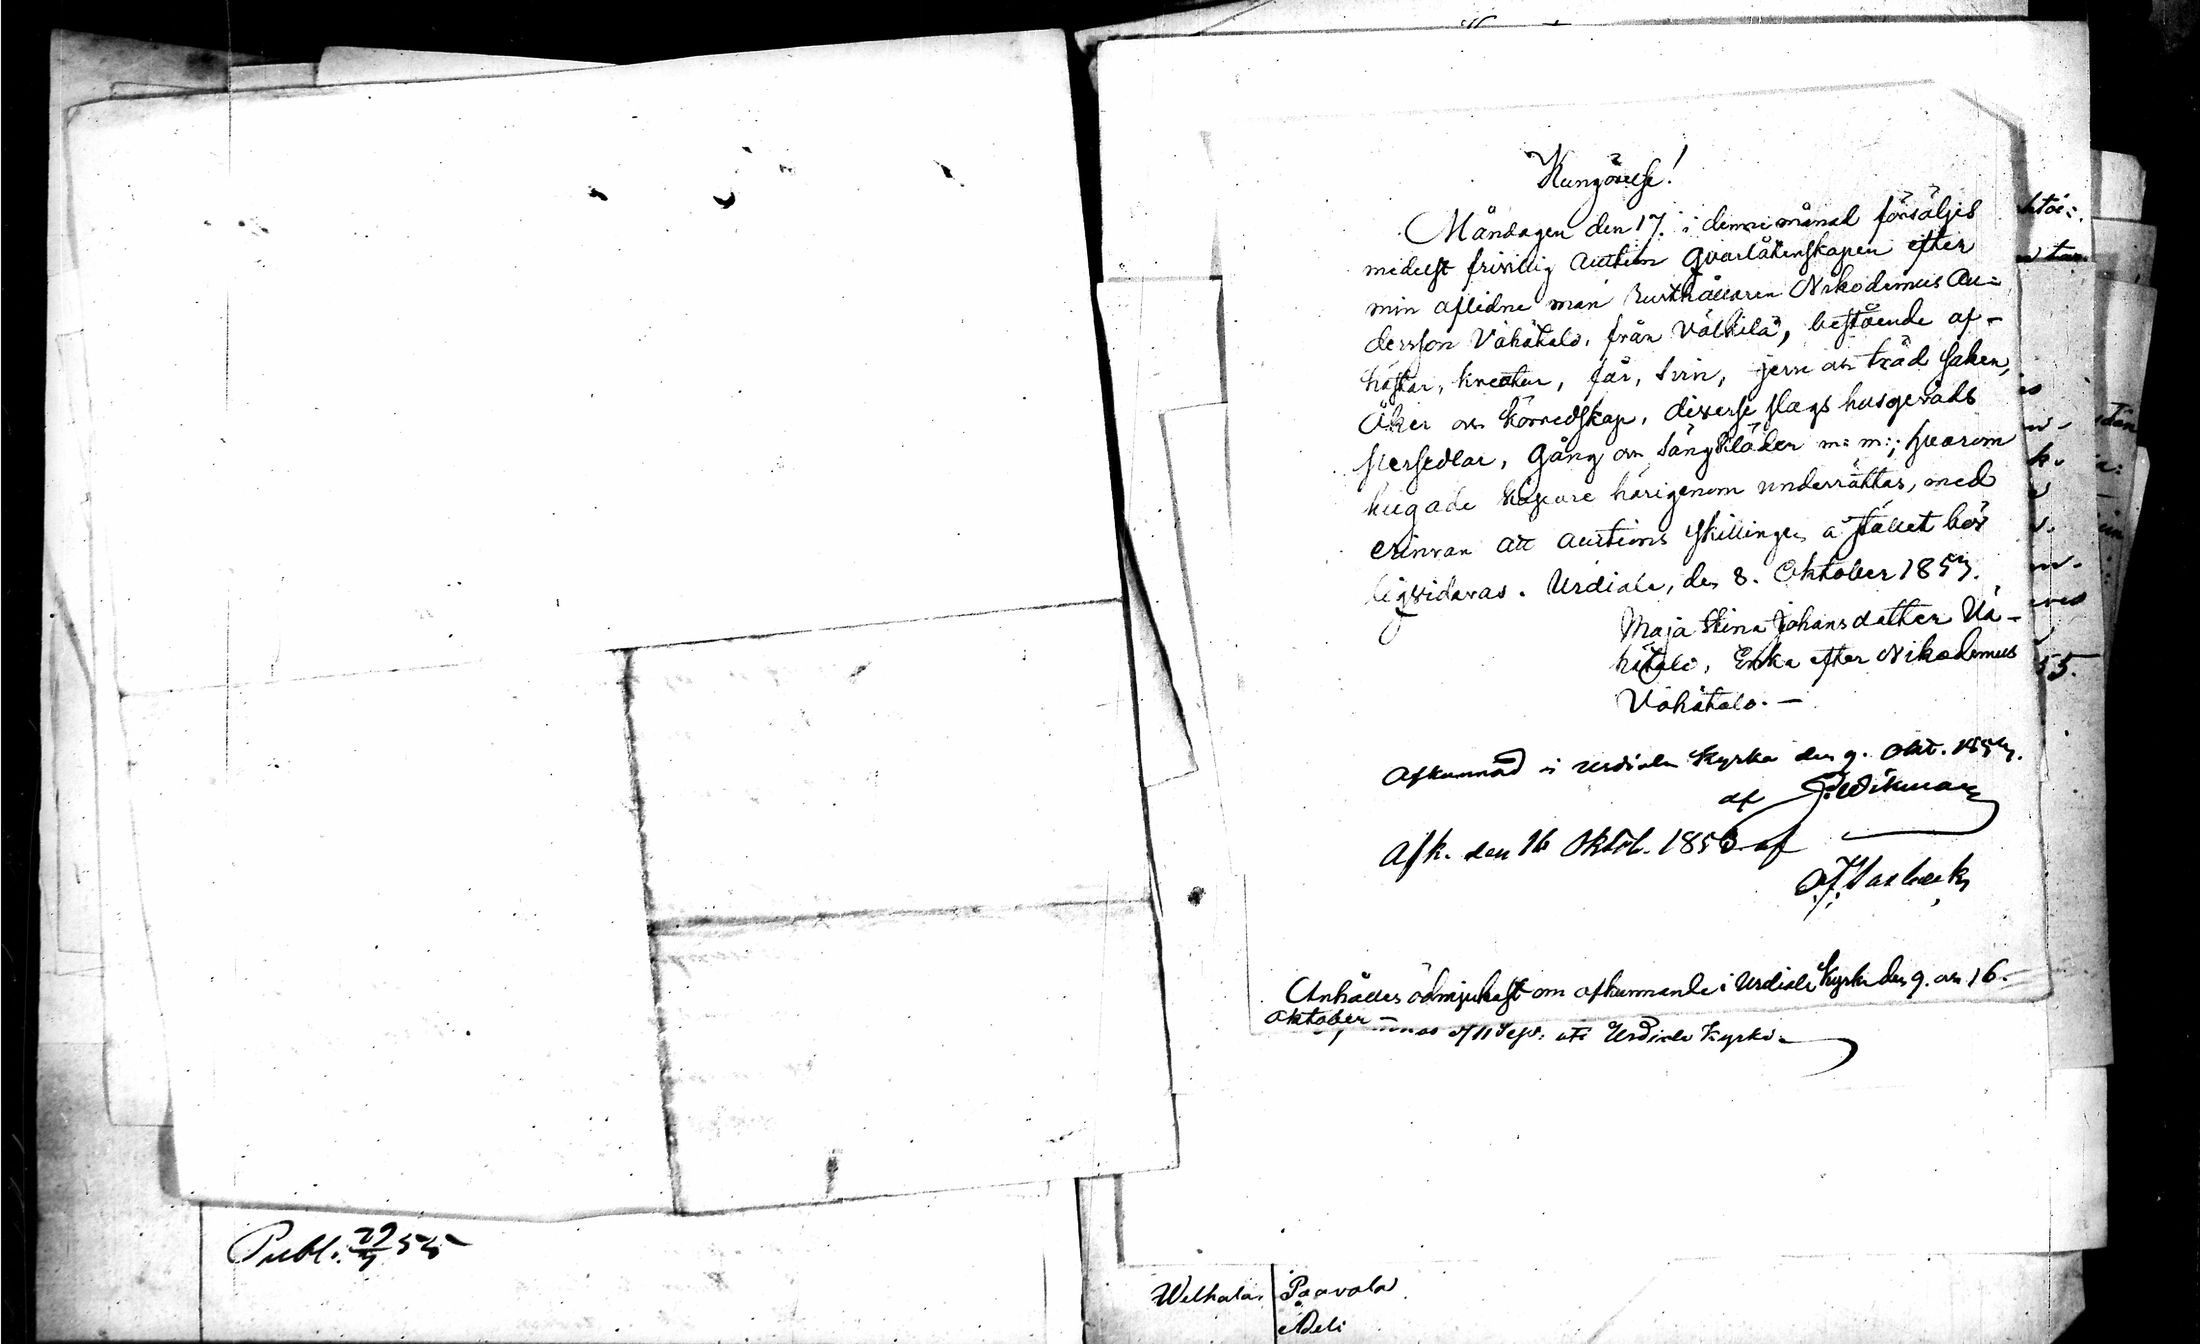 Publ. 29/7 55
Kungörelse!
Måndagen den 17. i denne månad försäljes
medelst frivillig auktion Qvarlåtenskapen efter
min aflidne man Rusthållaren Nikodemus An=
dersson Vähätalo, från Välkilä, bestående af -
hästar, kreatur, får, svin, jern och träd saker,
Åker och Körredskap, diverse slags husgeråds
persedlar, Gång och Sängkläder m: m:; hvarom
hugade köpare härigenom underrättas, med
erinran att auktions skillingen å stället bör
liqvideras. Urdiala, den 8. Oktober 1853.
Maja Stina Johansdotter Vä-
hätalo, Enka efter Nikodemus
Vähätalo. -
Afkunnad i Urdiala Kyrka den 9. Okt. 1853.
af Wikman
Afk. den 16 Oktob. 1853 af
Anhålles ödmjukast om afkunnande i Urdiala Kyrka den 9. och 16.
Oktober
uti Urdiala Kyrka.
55.
Welhala. Paavola
Adeli